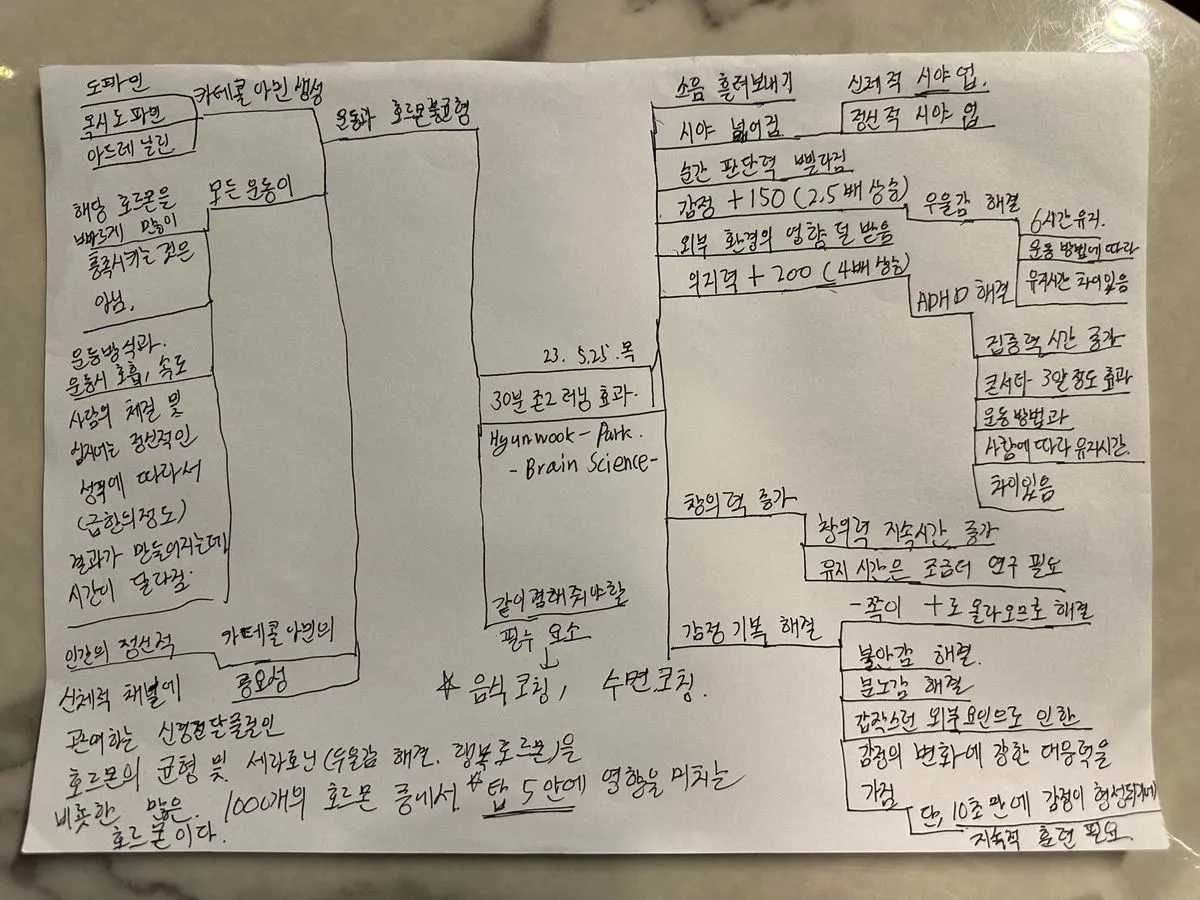 도파민
옥시도파민
아드레날린
카테콜아민 생성
운동과 호르몬불균형
해당 호르몬을
빠르게 많이
충족시키는 것은
아님.
모든 운동이
운동방식과.
운동시 호흡, 속도
사람의 체질 및
심지어는 정신적인
성격에 따라서
(급한의정도)
결과가 만들어지는데
시간이 달라짐.
인간의 정신적
신체적 채널에
관여하는 신경전달물질인
호르몬의 균형 및 세라토닌(우울감 해결. 행복호르몬)을
비롯한 많은. 1000개의 호르몬 중에서 *탑 5안에 영향을 미치는
호르몬이다.
카테콜아민의
중요성
23. 5.25.목
30분 존2 러닝 효과.
Hyunwook - Park.
- Brain Science -
같이 겸해줘야할
필수 요소
↓
* 음식 코칭, 수면.코칭.
소음 흘려보내기
시야 넓어짐
신체적 시야 업.
정신적 시야 업
순간 판단력 빨라짐
감정 +150 (2.5배 상승)
우울감 해결
6시간 유지.
운동 방법에 따라
유지시간 차이있음
외부 환경의 영향 덜 받음
의지력 +200 (4배 상승)
ADHD 해결
집중력 시간 증가
콘서타 3알 정도 효과
운동방법과
사람에 따라 유지시간.
차이있음
창의력 증가
창의력 지속시간 증가
유지 시간은 조금더 연구 필요
감정 기복 해결
-쪽이 +로 올라오므로 해결
불안감 해결.
분노감 해결
갑작스런 외부요인으로 인한
감정의 변화에 강한 대응력을
가짐
단, 10초만에 감정이 형성되기에
지속적 훈련 필요.